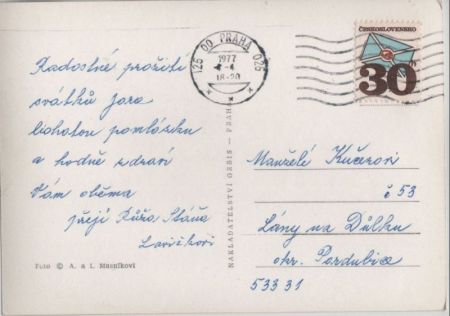 Radostné prožití
svátků jara
bohatou pomlázku
a hodně zdraví
Vám oběma
přejí Růža Stáňa
Foto © A. a I. Musníkovi
NAKLADATELSTVÍ ORBIS — PRAHA
125 00 PRAHA 025
1977
-4
18-20
ČESKOSLOVENSKO
30
Manželé Kučerovi
č 53
Lány na Důlku
okr. Pardubice
533 31